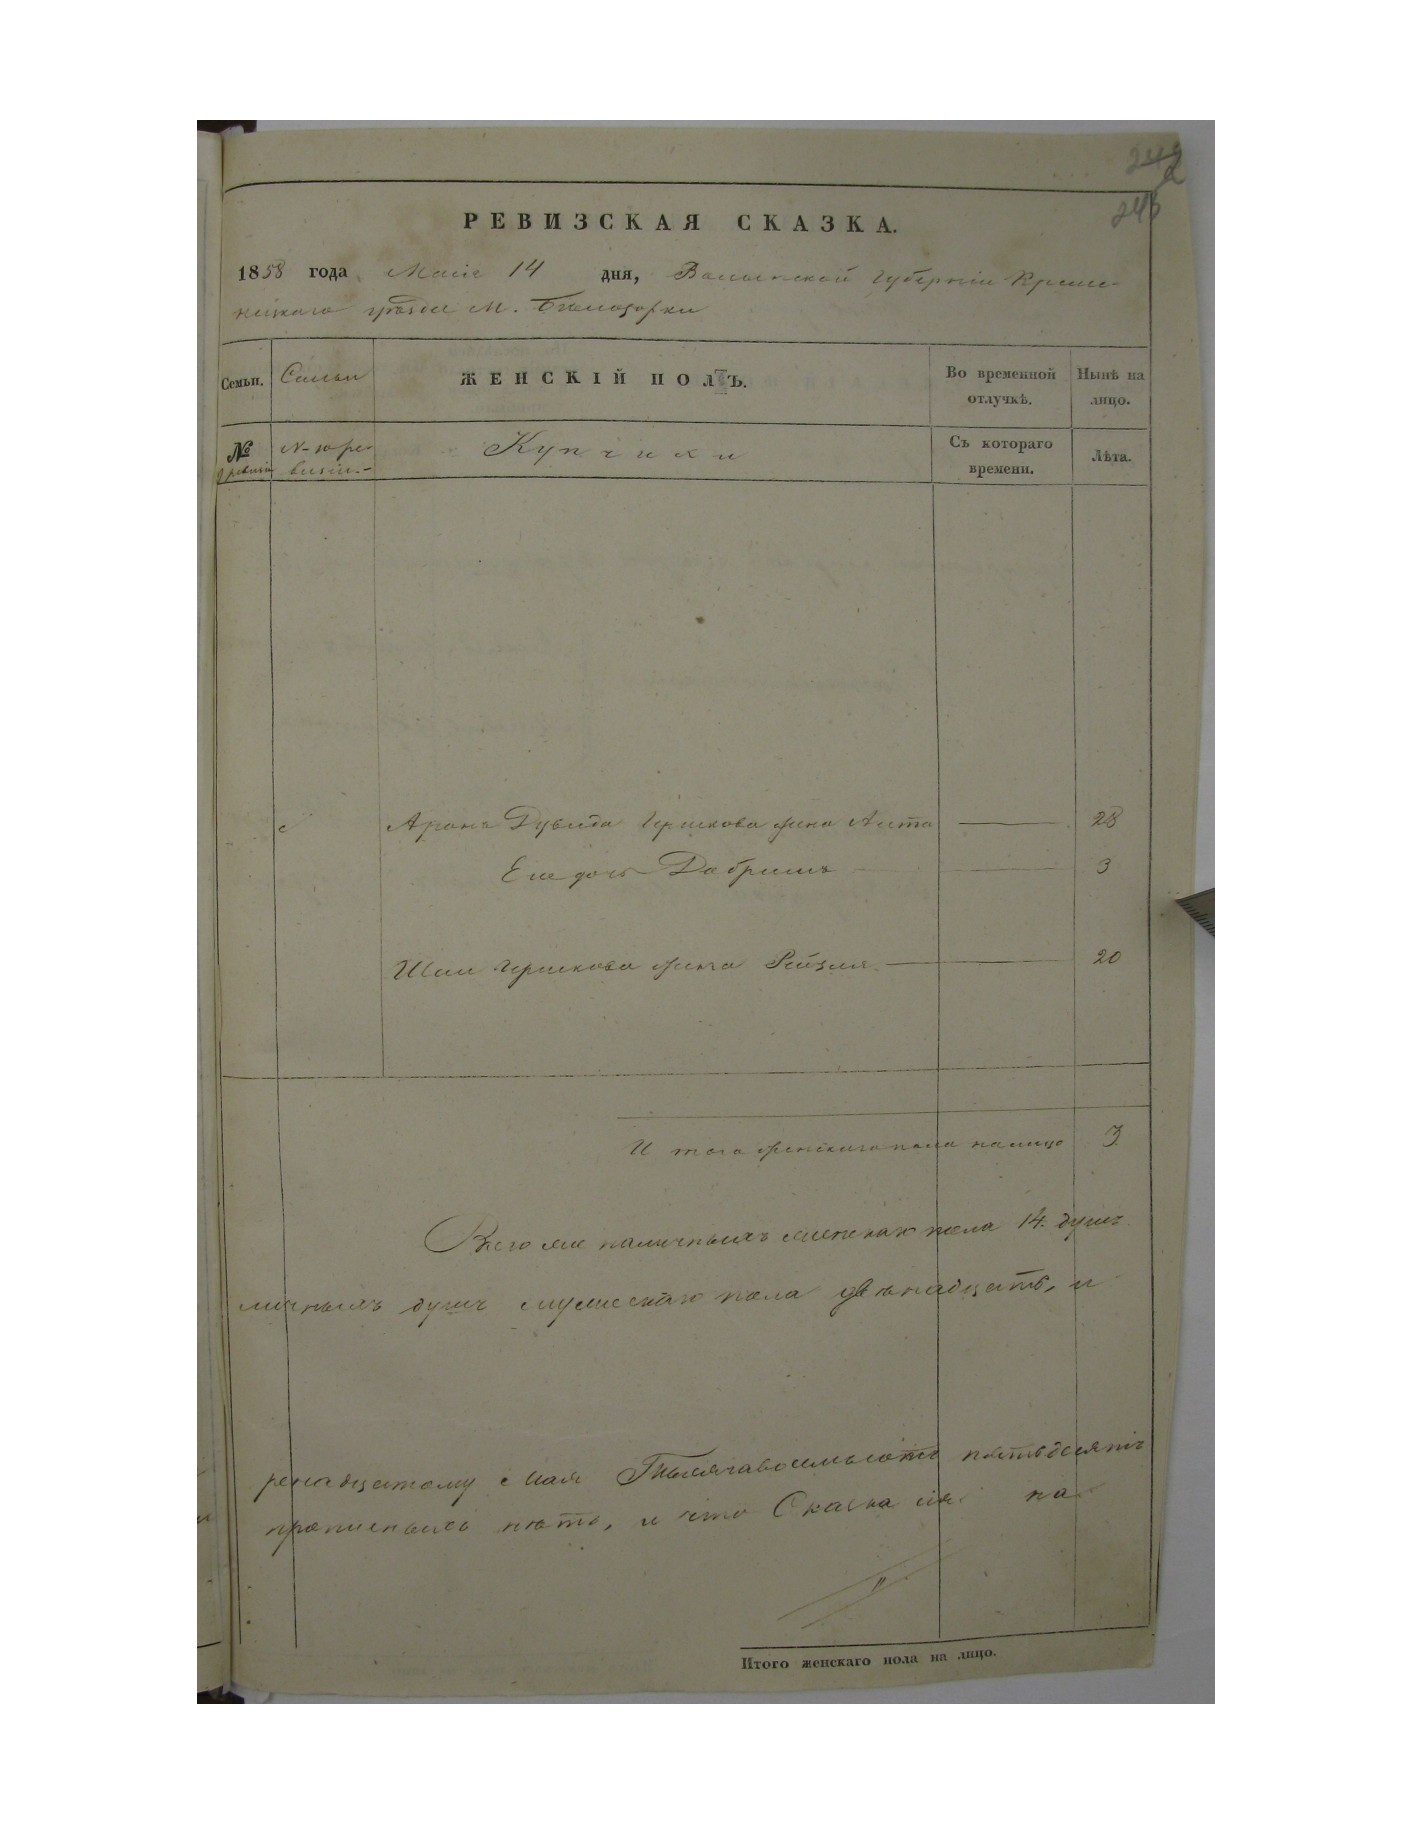 242
243
РЕВИЗСКАЯ СКАЗКА.
1858 года Маія 14 дня, Волынской Губерніи Креме-
нецкаго уѣзда М. Бѣлозорки
Семьи. Семьи ЖЕНСКІЙ ПОЛЪ. Во временной отлучкѣ. Нынѣ на лицо.
№ ревизіи № 10 ре-визіи.- Купчихи Съ котораго времени. Лѣта.
Арона Дувида Гершкова жена Аита 28
Его дочь Добришъ 3
Шаи Гершкова жена Рейзля 20
Итого женскаго пола налицо 3
Всего же наличныхъ женскаго пола 14. душъ
личныхъ душъ мужескаго пола двѣнадцать, и
ренадцатому Мая Тысяча восемьсотъ пятьдесятъ
прописныхъ нѣтъ, и что Сказка сія на
Итого женскаго пола на лицо.